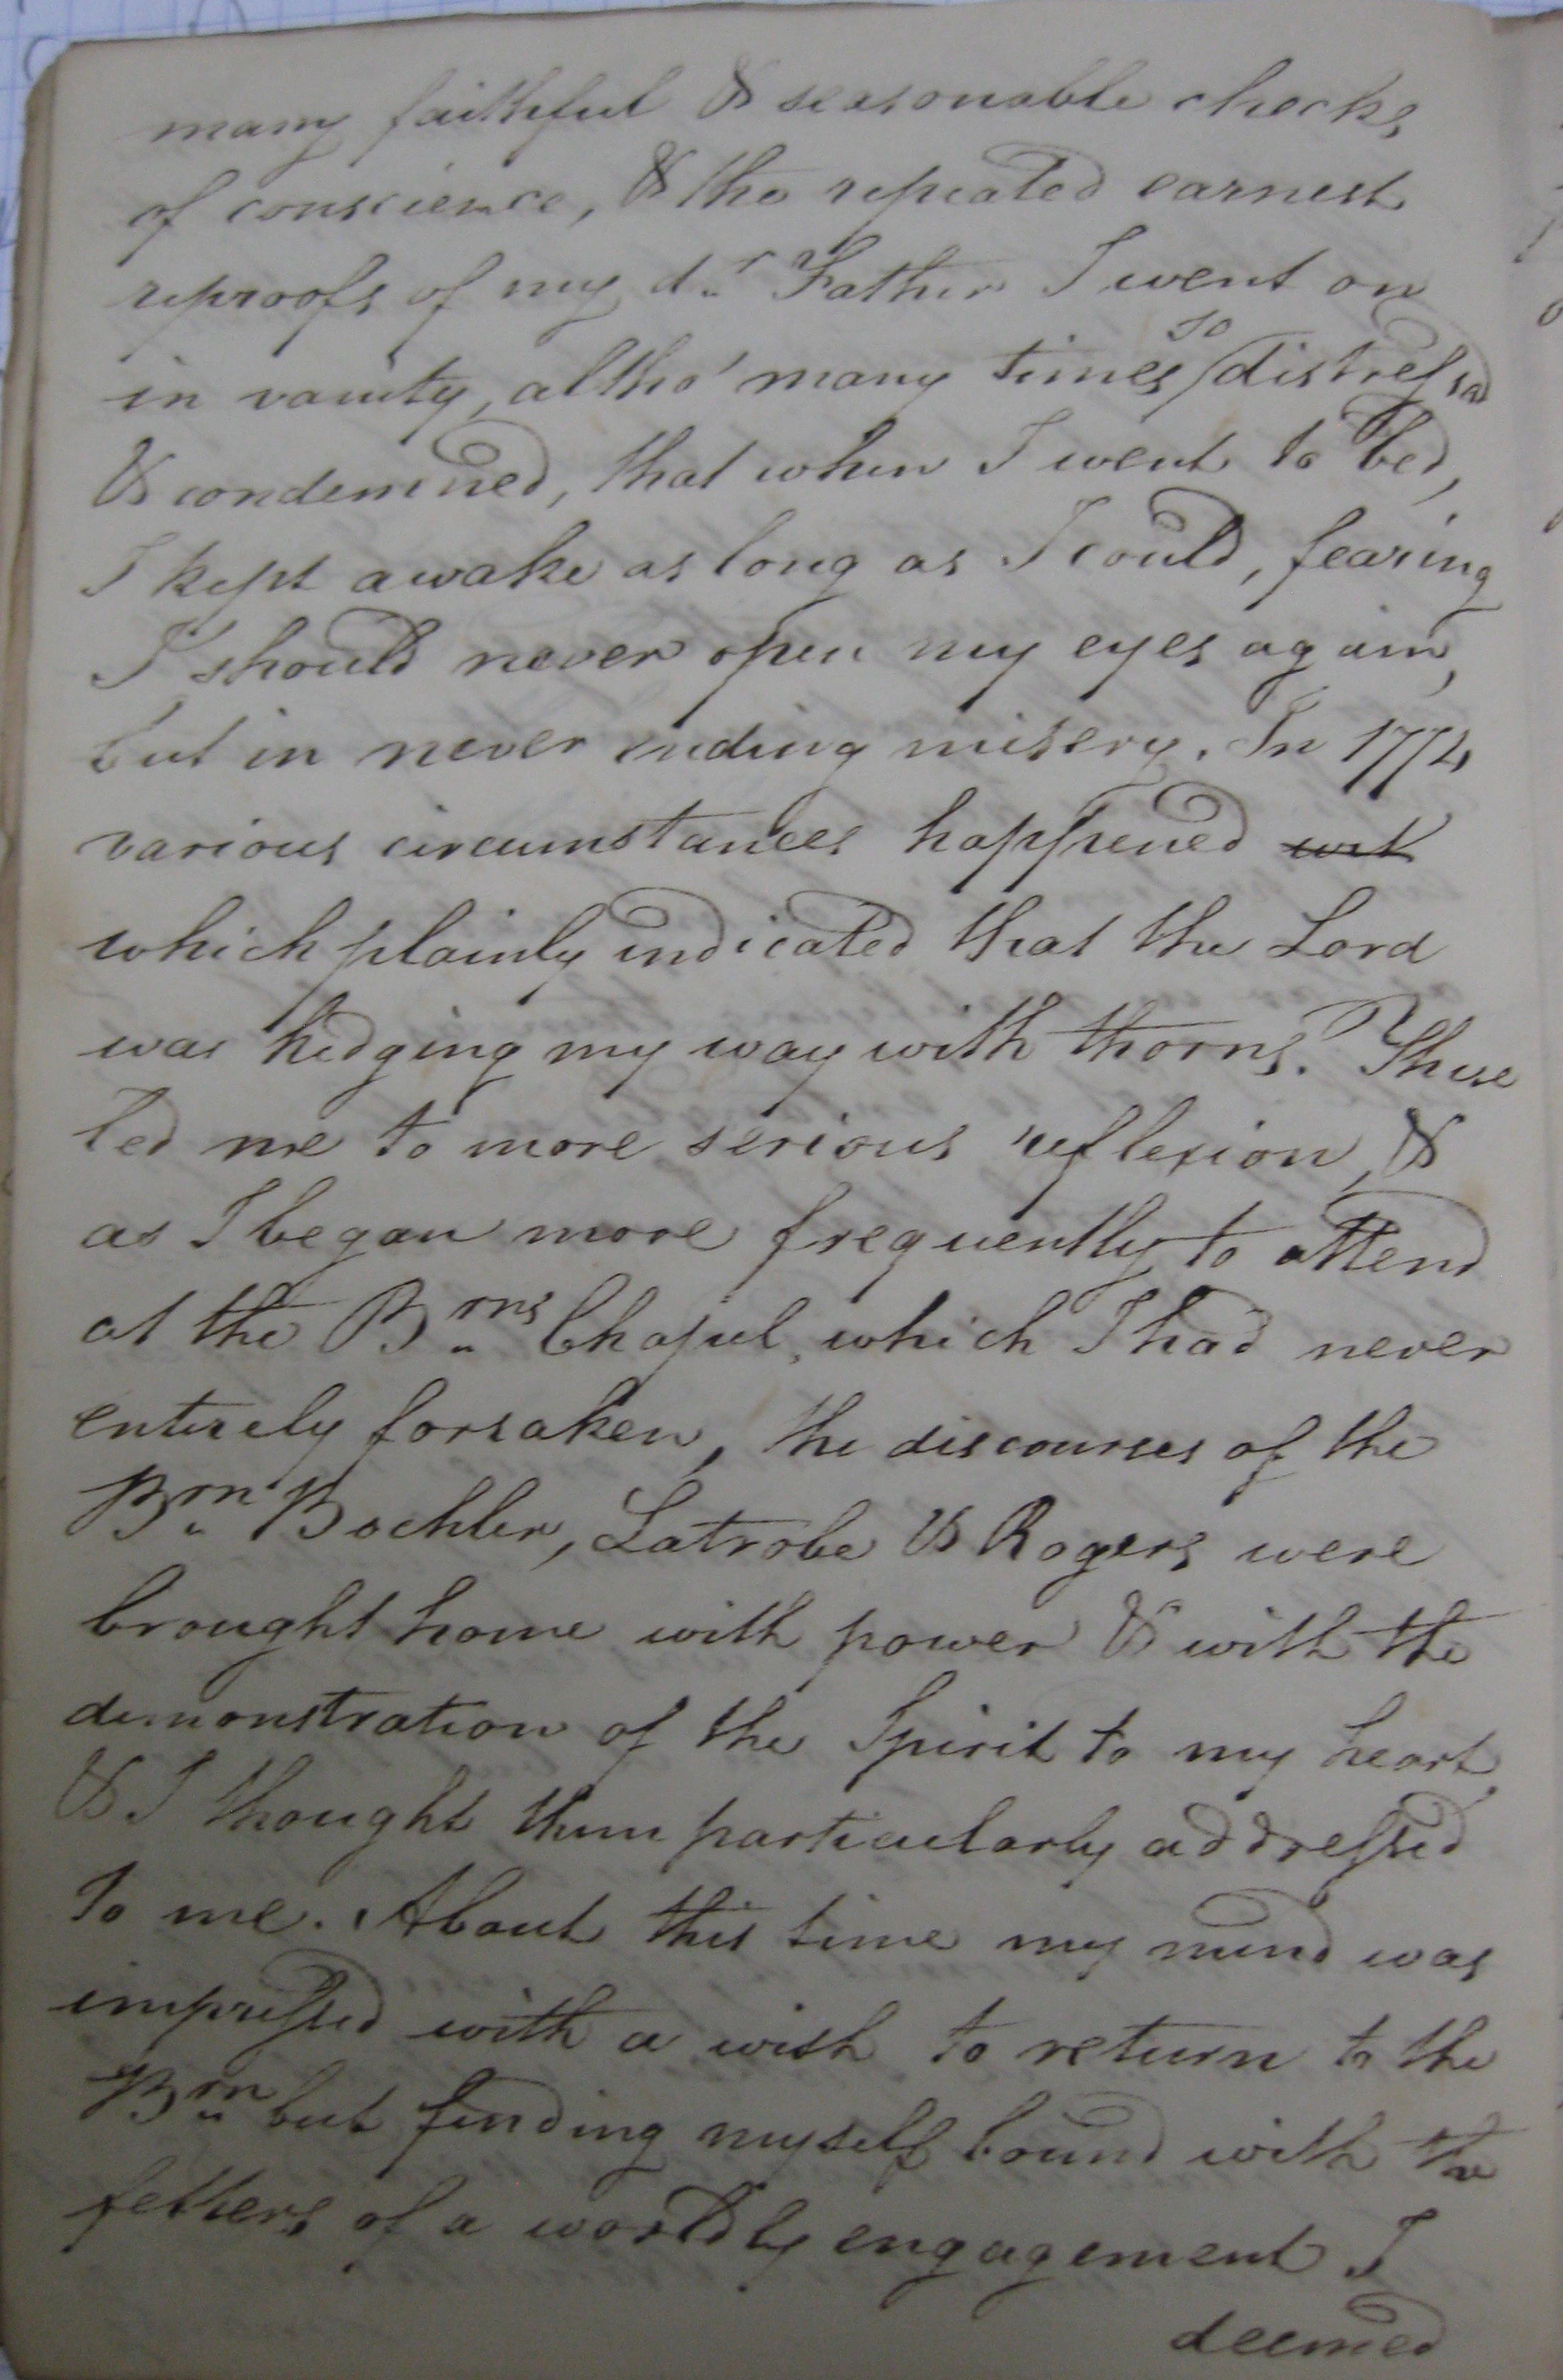 many faithful & seasonable checks
of conscience, & the repeated earnest
reproofs of my dr Father I went on
in vanity, altho' many times so distressd
& condemned, that when I went to bed,
I kept awake as long as I could, fearing
I should never open my eyes again,
but in never ending misery. In 1774
various circumstances happened
which plainly indicated that the Lord
was hedging my way with thorns. These
led me to more serious reflexion, &
as I began more frequently to attend
at the Brns Chapel, which I had never
entirely forsaken, the discourses of the
Brn Boehler, Latrobe & Rogers were
brought home with power & with the
demonstration of the Spirit to my heart,
& I thought them particularly addressed
to me. About this time my mind was
impressed with a wish to return to the
Brn but finding myself bound with the
fetters of a worldly engagement I
deemed